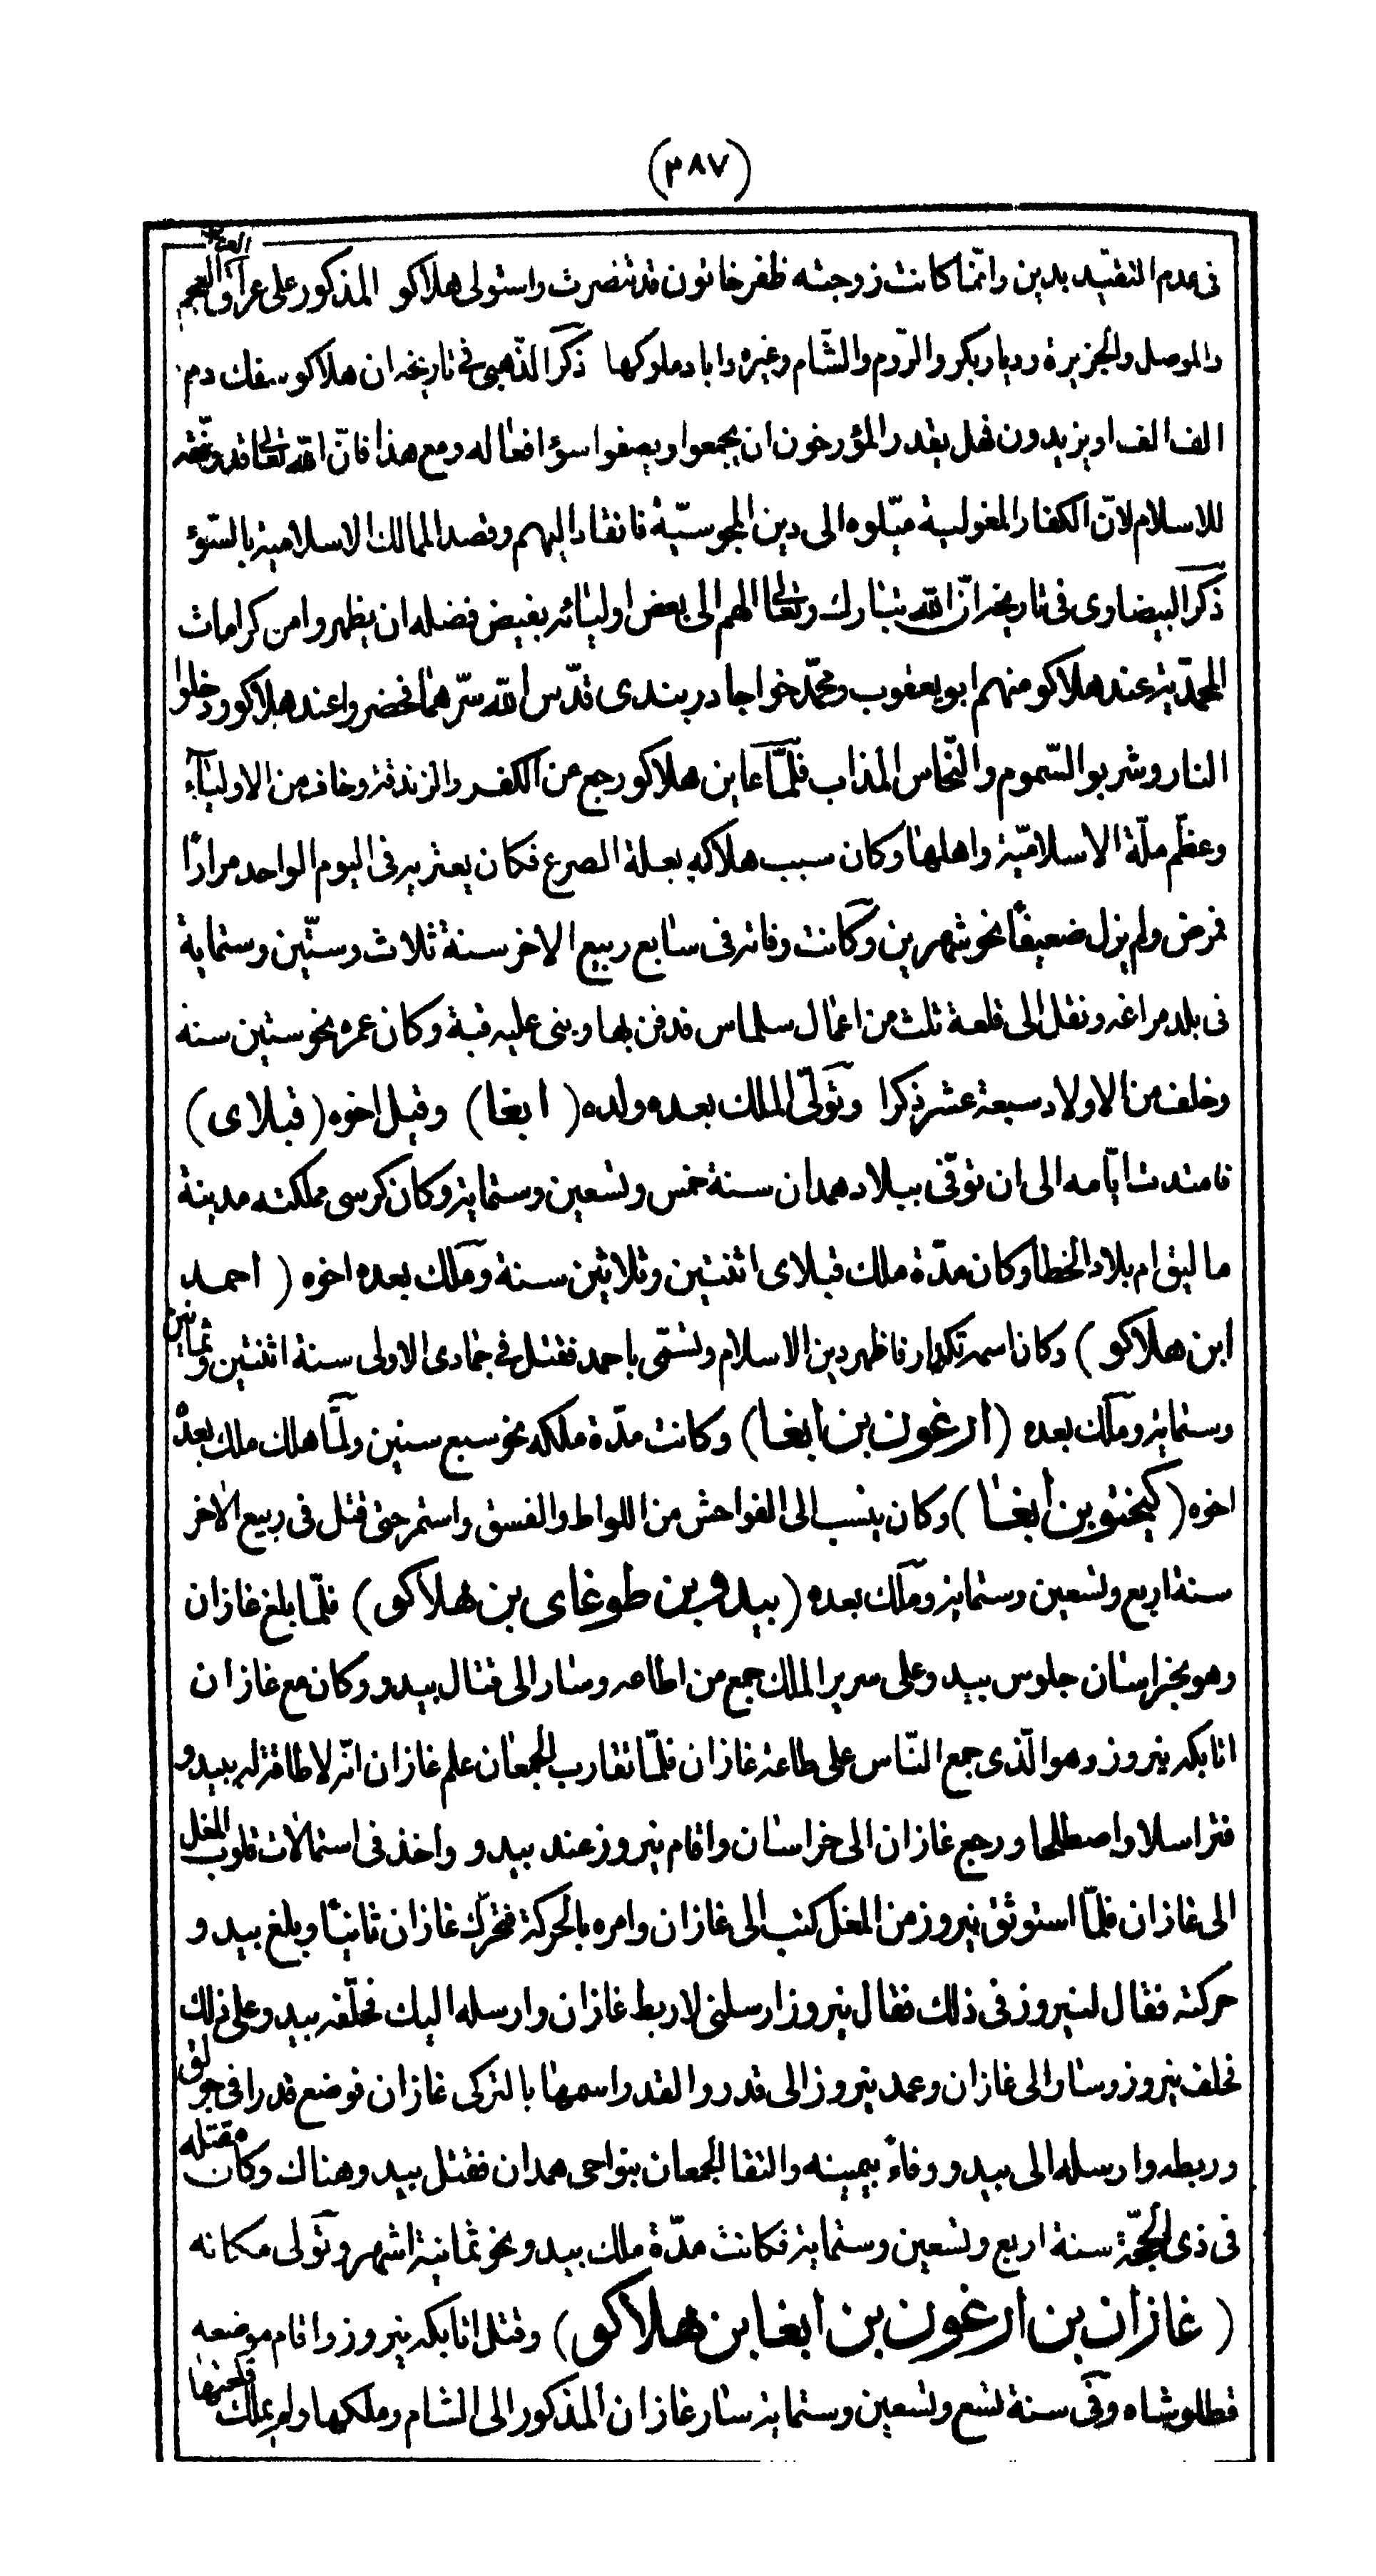 (٣٨٧)
فى عدم التقيّد بدين وانّما كانت زوجته ظفر خاتون قد تنصرت واستولى هلاكو المذكور على عراق العرب والعجم
والموصل والجزيرة وديار بكر والرّوم والشّام وغيره واباد ملوكها ذكر الذّهبى فى تاريخه ان هلاكو سفك دم
الف الف او يزيدون فهل يقدر المؤرخون ان يجمعوا ويصفوا سوٴ افعاله ومع هذا فانّ اللّه تعالى قد وفّقه
للاسلام لانّ الكفار المغولية ميّلوه الى دين المجوسيّة فانقاد اليهم وقصد الممالك الاسلامية بالسّوٴ
ذكر البيضاوى فى تاريخه انّ اللّه تبارك وتعالى الهم الى بعض اوليائه بفيض فضله ان يظهروا من كرامات
المحمّدية عند هلاكو منهم ابو يعقوب ومحمّد خواجا دربندى قدّس اللّه سرّهما فحضروا عند هلاكو ودخلوا
النار وشربوا السّموم والنّحاس المذاب فلمّا عاين هلاكو رجع عن الكفر والزندقة وخاف من الاولياء
وعظّم ملّة الاسلاميّة واهلها وكان سبب هلاكه بعلة الصرع فكان يعتريه فى اليوم الواحد مرارًا
فمرض ولم يزل ضعيفًا نحو شهرين وكانت وفاته فى سابع ربيع الاخر سنة ثلاث وستّين وستماية
فى بلد مراغه ونقل الى قلعة تلث من اعمال سلماس فدفن بها وبنى عليه قبة وكان عمره نحو ستين سنة
وخلف من الاولاد سبعة عشر ذكرا وتولّى الملك بعده ولده (ابغا) وقبل اخوه (قبلاى)
فامتدت ايّامه الى ان توفّى ببلاد همدان سنة خمس وتسعين وستماية وكان كرسى مملكته مدينة
ماليق ام بلاد الخطا وكان مدّة ملك قبلاى اثنتين وثلاثين سنة وملك بعده اخوه (احمد
ابن هلاكو) وكان اسمه تكدار فاظهر دين الاسلام وتسمّى باحمد فقتل فى جمادى الاولى سنة اثنتين وثمانين
وستماية وملك بعده (ارغون بن ابغا) وكانت مدّة ملكه نحو سبع سنين ولمّا هلك ملك بعده
اخوه (كيختو بن ابغا) وكان ينسب الى الفواحش من اللواط والفسق واستمر حتى قتل فى ربيع الاخر
سنة اربع وتسعين وستماية وملك بعده (بيدو بن طوغاى بن هلاكو) فلمّا بلغ غازان
وهو بخراسان جلوس بيدو على سرير الملك جمع من اطاعه وسار الى قتال بيدو وكان مع غازان
اتابكه نيروز وهو الّذى جمع النّاس على طاعة غازان فلمّا تقارب الجمعان علم غازان انّه لا طاقة له ببيدو
فتراسلا واصطلحا ورجع غازان الى خراسان واقام نيروز عند بيدو واخذ فى استمالات قلوب المغل
الى غازان فلمّا استوثق نيروز من المغل كتب الى غازان وامره بالحركة فتحرّك غازان ثانيًا وبلغ بيدو
حركته فقال لنيروز فى ذلك فقال نيروز ارسلنى لاربط غازان وارسله اليك فحلّفه بيدو على ذلك
فحلف نيروز وسار الى غازان وعمد نيروز الى قدر والقدر اسمها بالتركى غازان فوضع قدرا فى جولق
وربطه وارسله الى بيدو وفاءً بيمينه والتقا الجمعان بنواحى همدان فقتل بيدو هناك وكان مقتله
فى ذى الحجّة سنة اربع وتسعين وستماية فكانت مدّة ملك بيدو نحو ثمانية اشهر وتولى مكانه
(غازان بن ارغون بن ابغا بن هلاكو) وقتل اتابكه نيروز واقام موضعه
قطلوشاه وفى سنة تسع وتسعين وستماية سار غازان المذكور الى الشام وملكها ولم يملك قلعتها